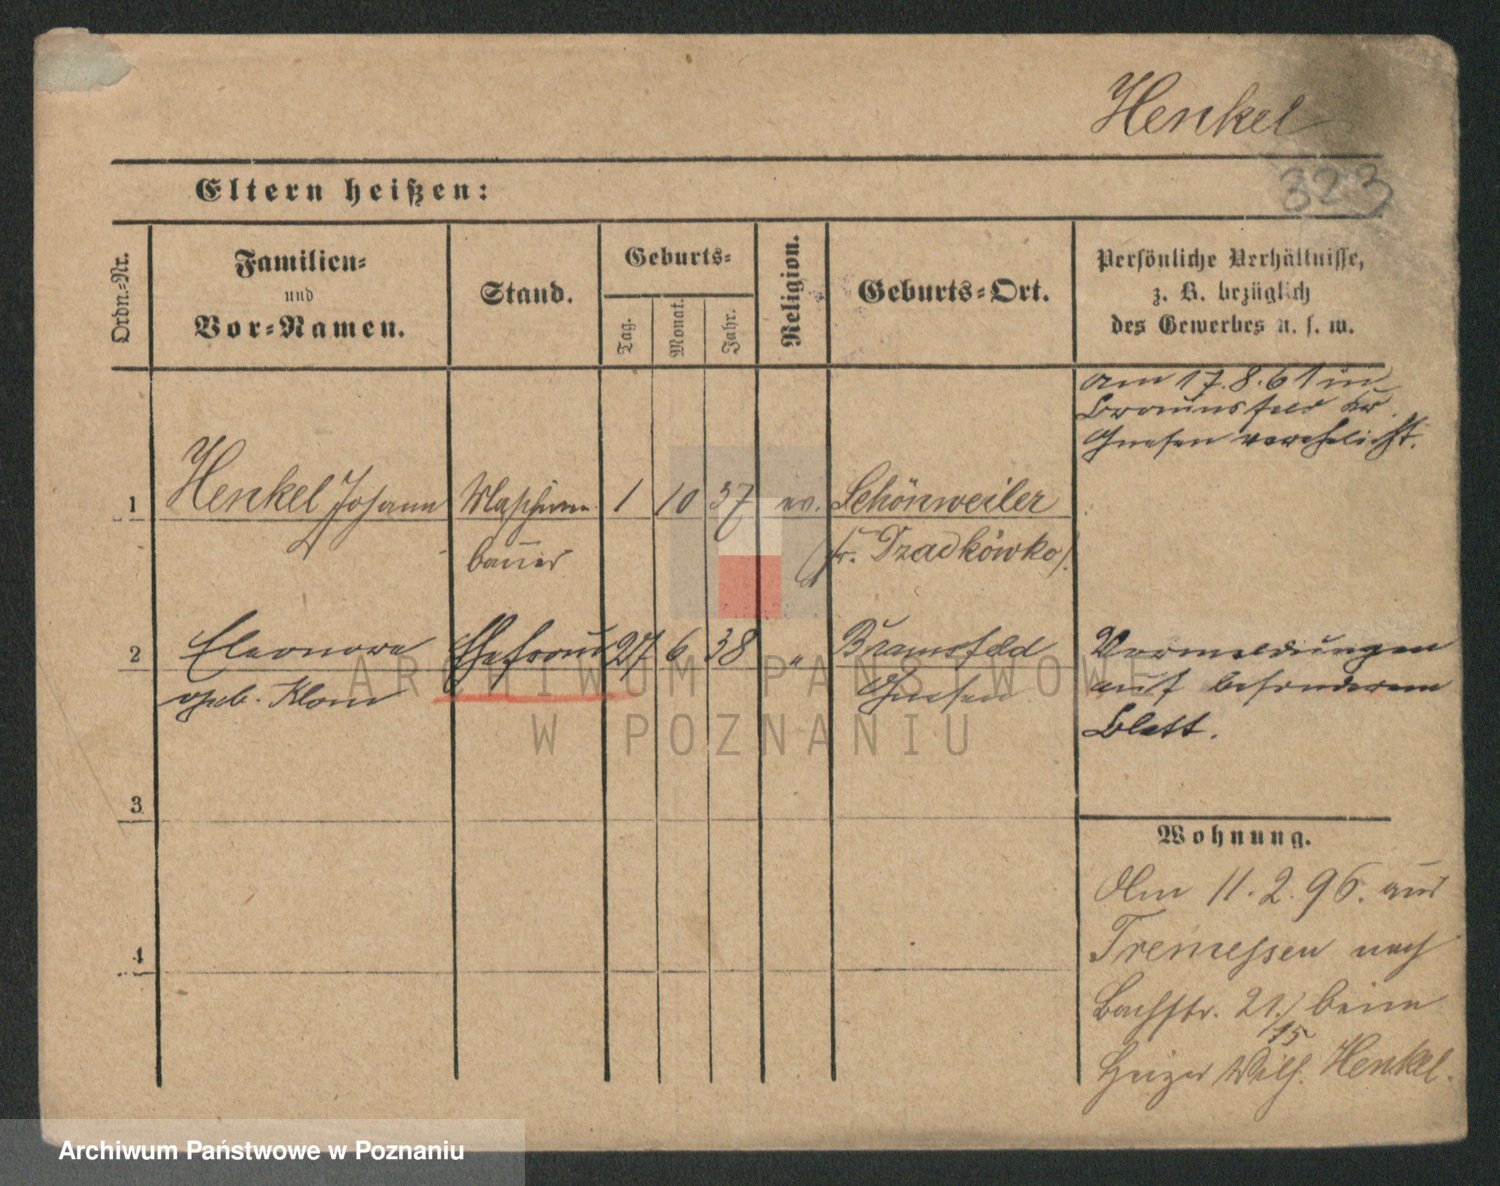 Henkel
323
Eltern heißen:
Ordn.-Nr.
Familien-
und
Vor-Namen.
Stand.
Geburts-
Tag.
Monat.
Jahr.
Religion.
Geburts-Ort.
Persönliche Verhältnisse,
z. B. bezüglich
des Gewerbes u. s. w.
am 17.8.61 in
Braunsfeld Kr.
Gnesen verehelicht.
1 Henkel Johann Maschinen 1 10 37 ev. Schönweiler
bauer (fr. Dzadkówko).
2 Eleonore Ehefrau 27 6 38 " Braunsfeld
geb. Klam Gnesen
Vormeldungen
auf besonderem
Blatt.
3
4
Wohnung.
Am 11.2.96. aus
Tremessen nach
Bachstr. 21./ beim
15
Heizer Wilh. Henkel.
ARCHIWUM PAŃSTWOWE
W POZNANIU
Archiwum Państwowe w Poznaniu